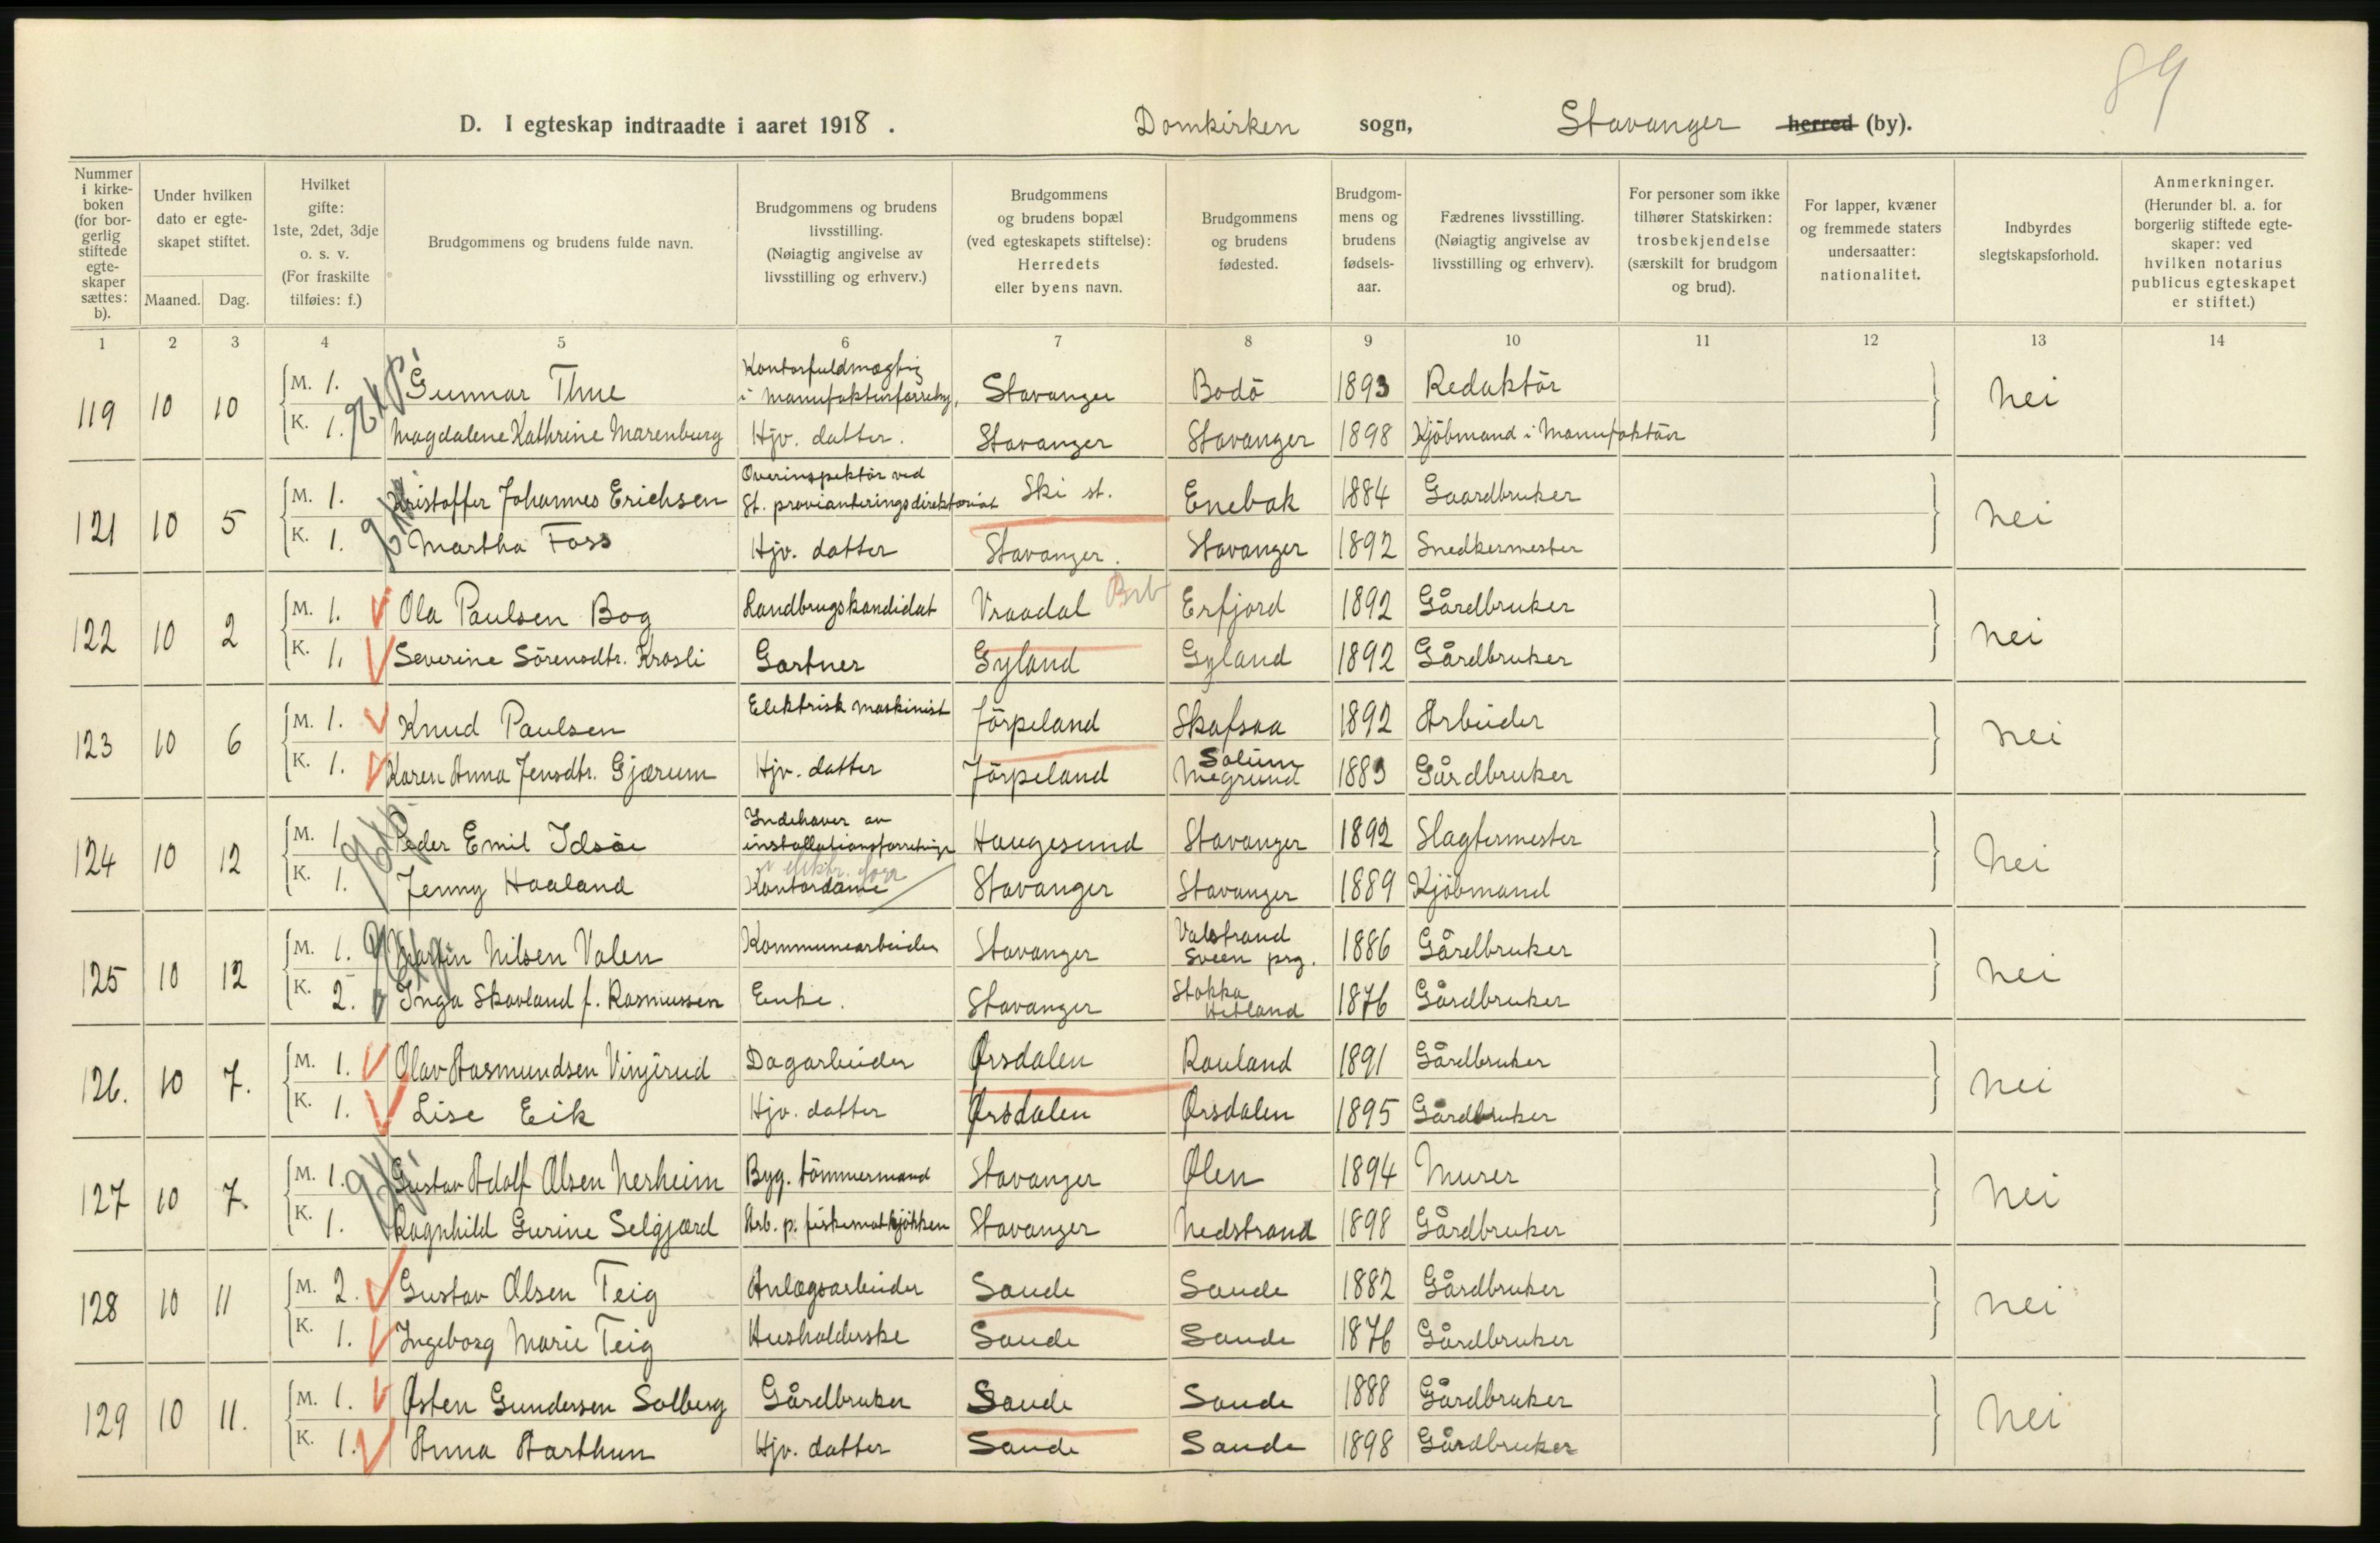 89
D. I egteskap indtraadte i aaret 1918. Domkirken sogn, Stavanger herred (by).
Nummer i kirkeboken (for borgerlig stiftede egteskaper sættes: b).
Under hvilken dato er egteskapet stiftet.
Maaned. Dag.
Hvilket gifte: 1ste, 2det, 3dje o. s. v. (For fraskilte tilføies: f.)
Brudgommens og brudens fulde navn.
Brudgommens og brudens livsstilling. (Nøiagtig angivelse av livsstilling og erhverv.)
Brudgommens og brudens bopæl (ved egteskapets stiftelse): Herredets eller byens navn.
Brudgommens og brudens fødested.
Brudgommens og brudens fødselsaar.
Fædrenes livsstilling. (Nøiagtig angivelse av livsstilling og erhverv).
For personer som ikke tilhører Statskirken: trosbekjendelse (særskilt for brudgom og brud).
For lapper, kvæner og fremmede staters undersaatter: nationalitet.
Indbyrdes slegtskapsforhold.
Anmerkninger. (Herunder bl. a. for borgerlig stiftede egteskaper: ved hvilken notarius publicus egteskapet er stiftet.)
1 2 3 4 5 6 7 8 9 10 11 12 13 14
119 10 10 M. 1. Gunnar Thue Kontorfuldmægtig i Manufakturforretng, Stavanger Bodö 1893 Redaktör nei
K. 1. Magdalene Kathrine Marenburg Hjv. datter. Stavanger Stavanger 1898 Kjöbmand i Manufaktür
121 10 5 M. 1. Kristoffer Johannes Erichsen Overinspektör ved St. provianteringsdirektoriat Ski st. Enebak 1884 Gaardbruker nei
K. 1. Martha Foss Hjv. datter Stavanger. Stavanger 1892 Snedkermester
122 10 2 M. 1. Ola Paulsen Bog Landbrugskandidat Vraadal Erfjord 1892 Gårdbruker nei
K. 1. Severine Sörensdtr. Krosli Gartner Gyland Gyland 1892 Gårdbruker
123 10 6 M. 1. Knud Paulsen Elektrisk maskinist Jörpeland Skafsaa 1892 Arbeider nei
K. 1. Karen Anna Jensdtr. Gjærum Hjv. datter Jörpeland Solum 1883 Gårdbruker
124 10 12 M. 1. Peder Emil Idsöe Indehaver av installationsforretnige Haugesund Stavanger 1892 Slagtermester nei
K. 1. Jenny Haaland Kontordame Stavanger Stavanger 1889 Kjöbmand
125 10 12 M. 1. Martin Nilsen Valen Kommunearbeider Stavanger Valestrand Sveen prg. 1886 Gårdbruker nei
K. 2. Inga Skavland f. Rasmussen Enke. Stavanger Stokka Hetland 1876 Gårdbruker
126. 10 7. M. 1. Olav Aasmundsen Vinjerud Dagarbeider Ørsdalen Rauland 1891 Gårdbruker nei
K. 1. Lise Eik Hjv. datter Ørsdalen Ørsdalen 1895 Gårdbruker
127 10 7. M. 1. Gustav Adolf Olsen Nerheim Byg. tömmermand Stavanger Ølen 1894 Murer nei
K. 1. Ragnhild Gurine Selgjærd Arb. p. fiskematkjökken Stavanger Nedstrand 1898 Gårdbruker
128 10 11 M. 2. Gustav Olsen Teig Anlægsarbeider Saude Saude 1882 Gårdbruker nei
K. 1. Ingeborg Marie Teig Husholderske Saude Saude 1876 Gårdbruker
129 10 11. M. 1. Østen Gundersen Solberg Gårdbruker Saude Saude 1888 Gårdbruker nei
K. 1. Anna Aarthun Hjv. datter Saude Saude 1898 Gårdbruker